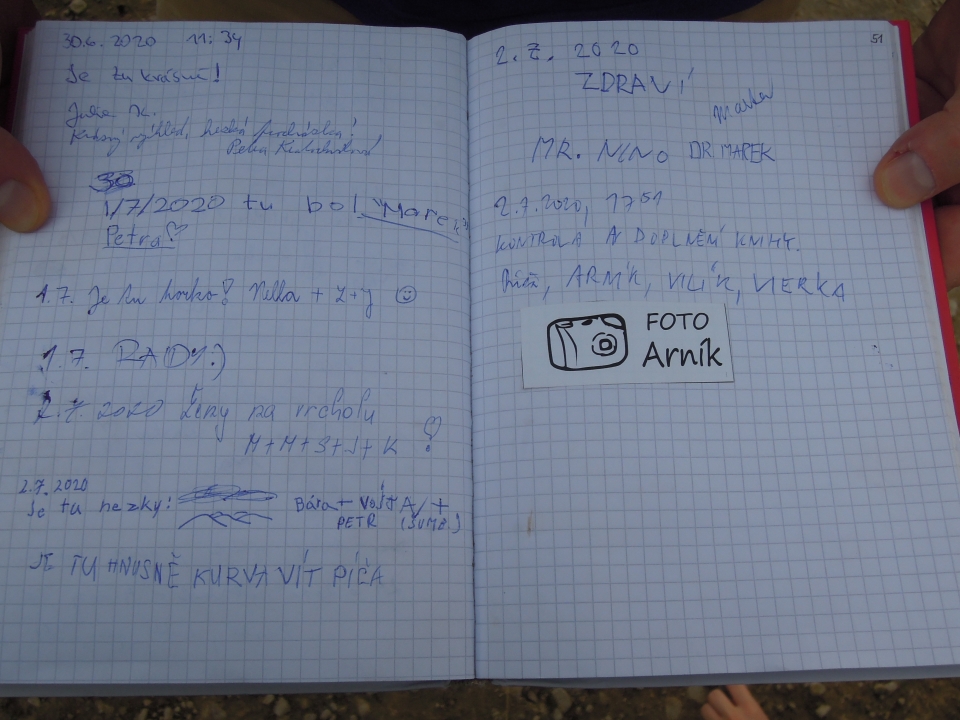 30.6.2020 11:34
Je tu krásně!
Julie K.
Krásný výhled, hezká procházka!
Petra
30
1/7/2020 tu bol "Marek"
Petra
1.7. Je tu horko! Nella + Z+J
1.7. RADY:)
2.7.2020 Ženy na vrcholu
M+M+S+J+K
2.7.2020
Je tu hezky:
Bára + VOJTA/+
PETR (SUMB.)
JE TU HNUSNĚ KURVA VÍT PÍČA
51
2.7.2020
ZDRAVÍ
MR. NINO DR. MAREK
2.7.2020, 17 51
KONTROLA A DOPLNĚNÍ KNIHY.
ARNÍK, VILÍK, VIERKA
FOTO
Arník